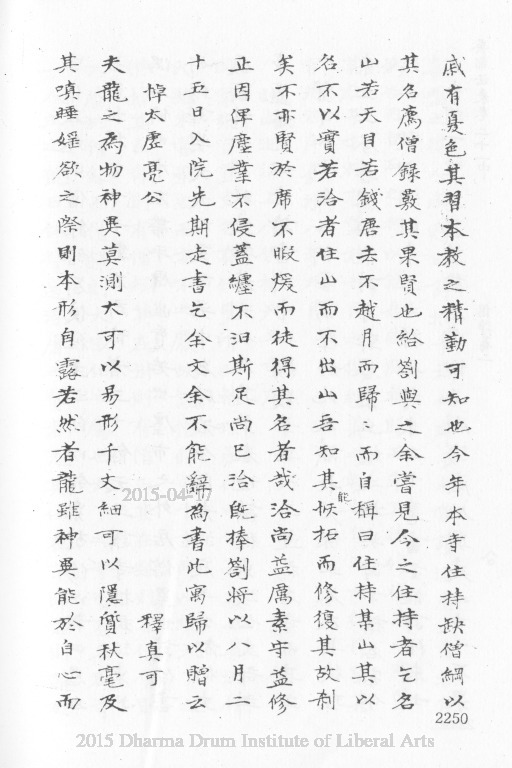 戚有憂色其習本教之精勤可知也今年本寺住持缺僧綱以
其名薦僧錄覈其果賢也給劄與之余嘗見今之住持者乞名
山若天目若錢唐去不越月而歸而自稱曰住持某山其以
名不以實若洽者住山而不出山吾知其能恢拓而修復其故剎
矣不亦賢於席不暇煖而徒得其名者哉洽尚益厲素守益修
正因俾塵業不侵蓋纏不汩斯足尚已洽既捧劄將以八月二
十五日入院先期走書乞余文余不能辭為書此寓歸以贈云
悼太虛亮公 釋真可
夫龍之為物神異莫測大可以易形千丈細可以隱質秋毫及
其嗔睡婬欲之際則本形自露若然者龍雖神異能於自心而
2250
2015-04-17
2015 Dharma Drum Institute of Liberal Arts